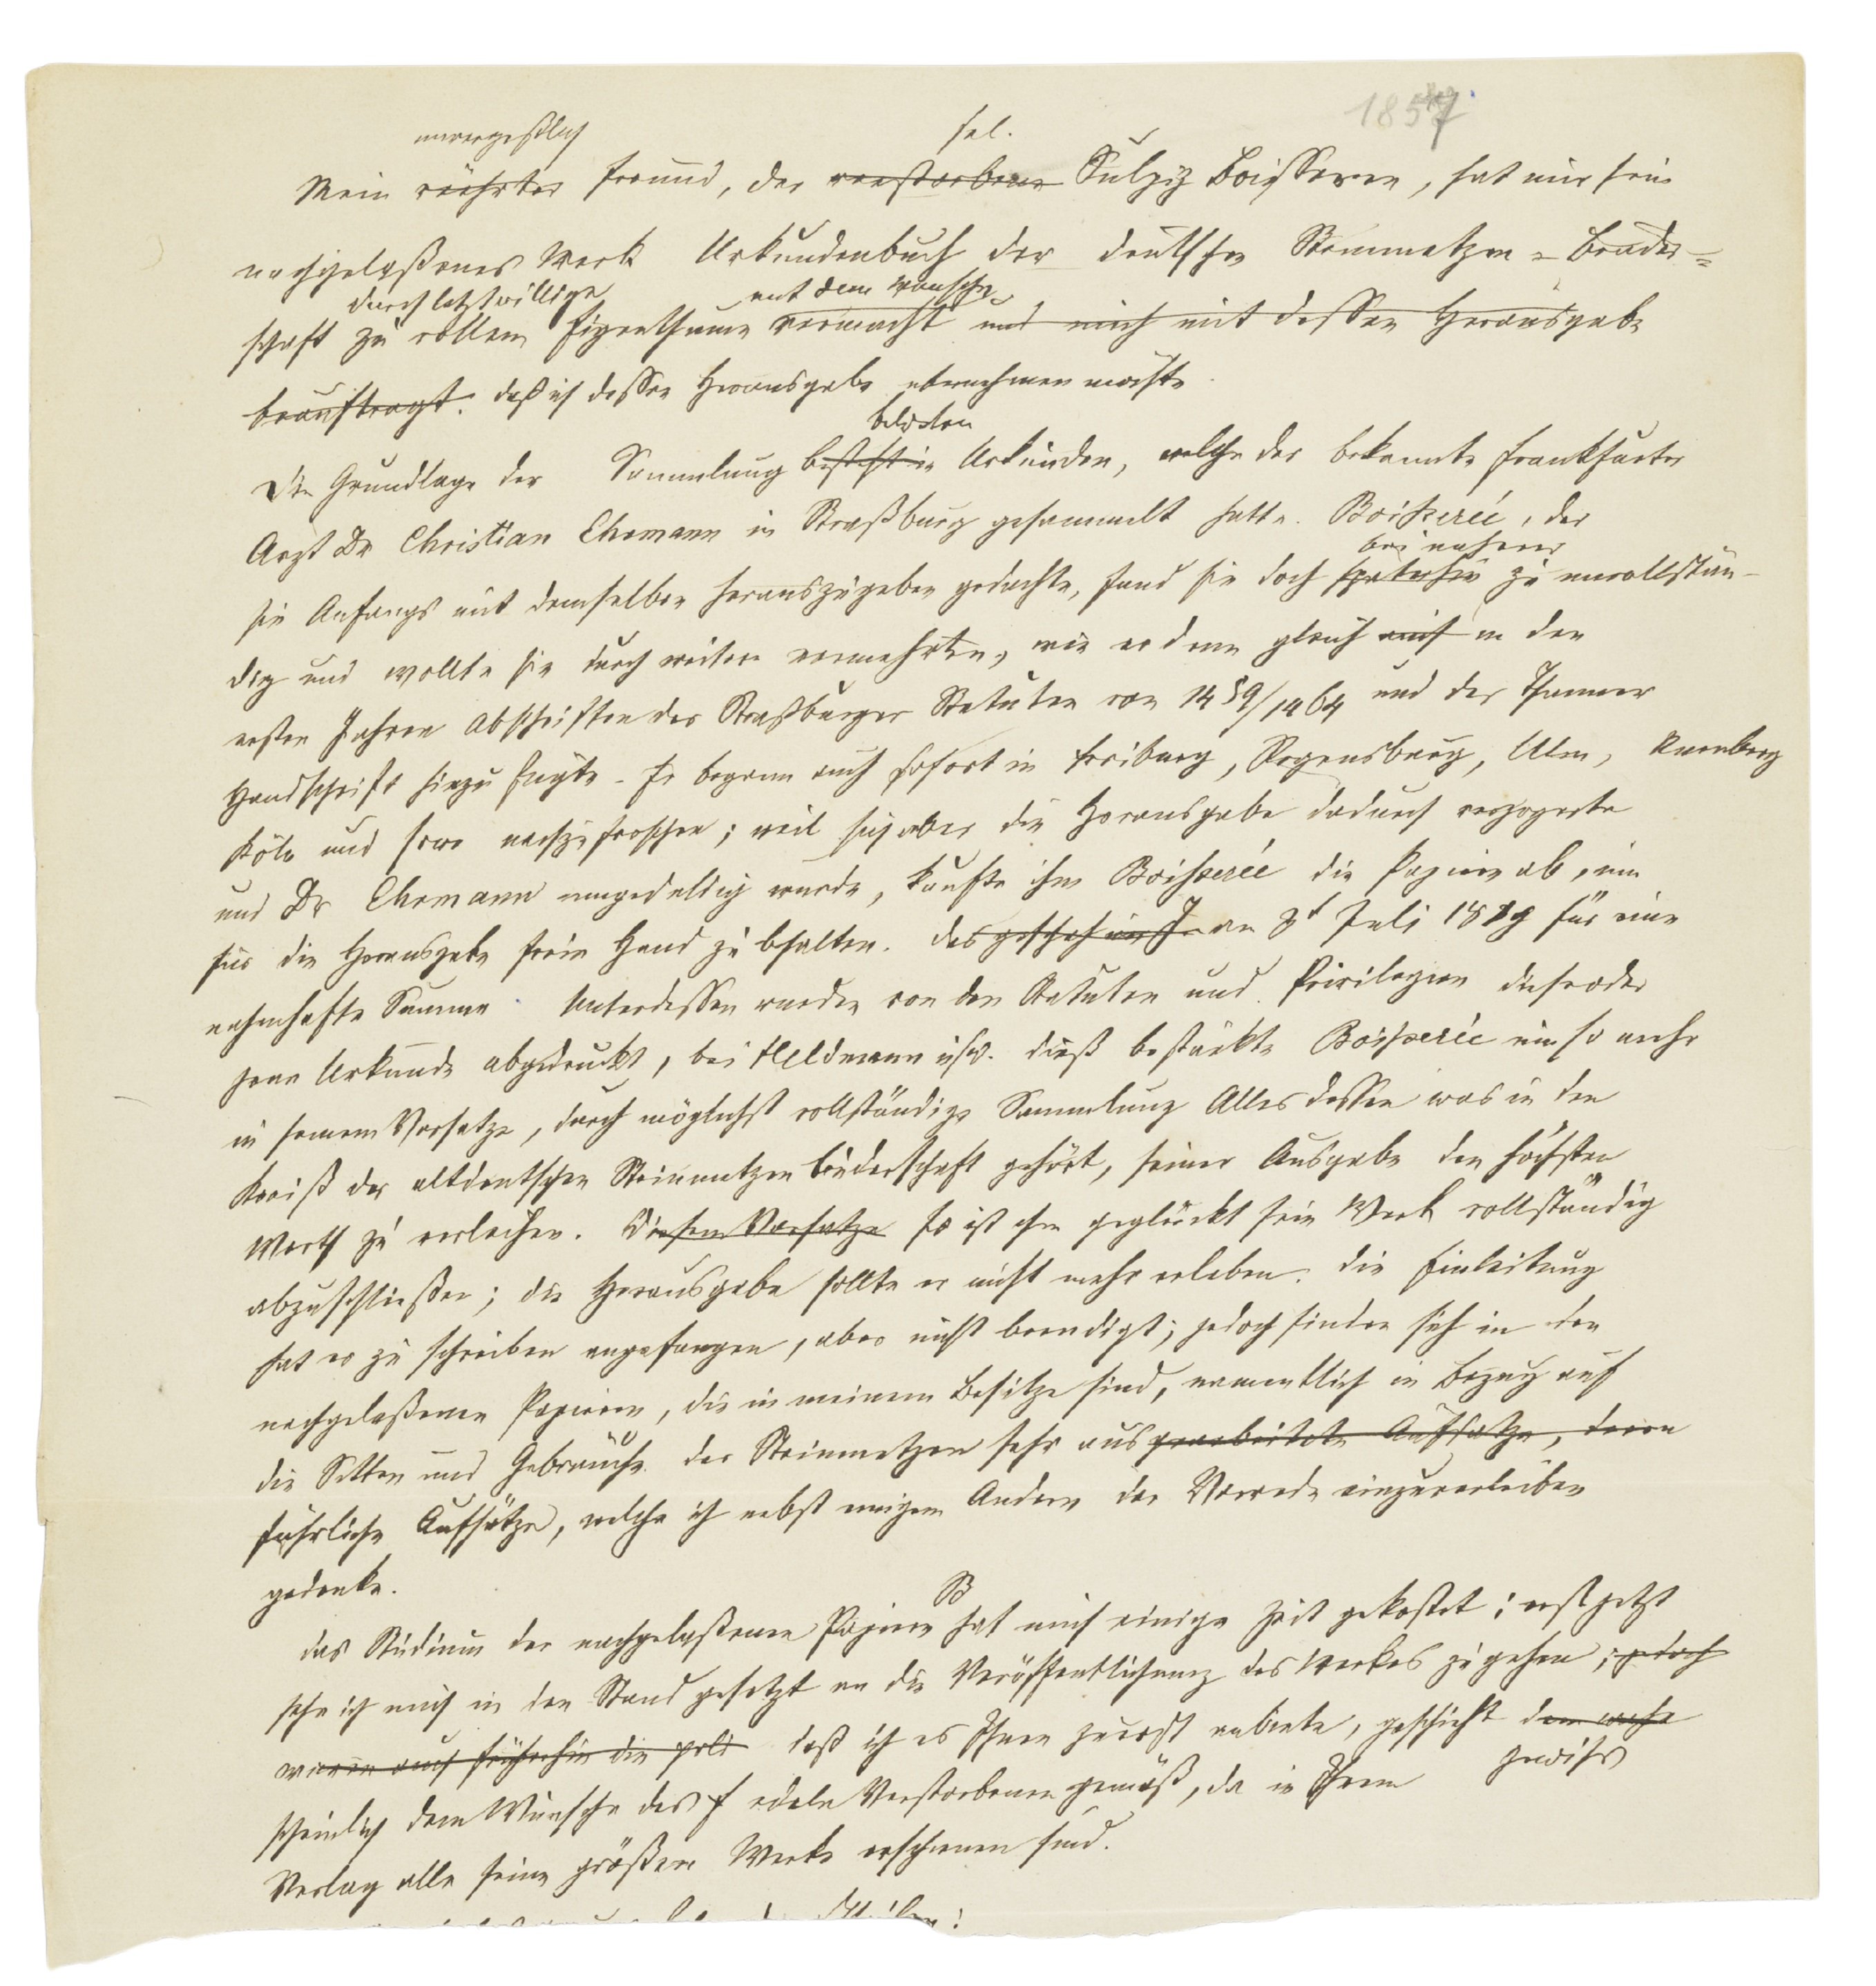 1857
unvergeßlich sel.
Mein verehrter Freund, der verstorbene Sulpiz Boisseree, hat mir sein
nachgelaßenes Werk Urkundenbuch der deutschen Steinmetzen-Bruder-
durch letztwillige mit dem Wunsche
schaft zu vollem Eigenthume vermacht und mich mit dessen Herausgabe
beauftragt. daß ich dessen Herausgabe übernehmen möchte
bilden
Die Grundlage der Sammlung besteht in Urkunden, welche der bekannte Frankfurter
Arzt Dr Christian Ehrmann in Straßburg gesammelt hatte. Boisserée, der
bei näherer
sie Anfangs mit demselben herauszugeben gedachte, fand sie doch späterhin zu unvollstän-
dig und wollte sie durch weitere vermehrten, wie er denn gleich auch in den
ersten Jahren Abschriften der Straßburger Statuten von 1459/1464 und der Thanner
Handschrift hinzu fügte. Er begann auch sofort in Freiburg, Regensburg, Ulm, Nurnberg
Köln und ferne nachzuforschen; weil sich aber die Herausgabe dadurch verzögerte
und Dr Ehrmann ungeduldig wurde, kaufte ihm Boisserée die Papiere ab, um
für die Herausgabe freie Hand zu behalten. das geschah im J. am 8t Juli 1819 für eine
nahmhafte Summe. Unterdessen wurden von den Statuten und Privilegien diese oder
jene Urkunde abgedruckt, bei Heldmann usw. dieß bestärkte Boisserée um so mehr
in seinem Vorsatze, durch möglichst vollständige Sammlung Alles dessen was in den
Kreiß der altdeutschen Steinmetzen Bruderschaft gehört, seiner Ausgabe den höchsten
Werth zu verleihen. Diesem Vorsatze Es ist ihm geglückt sein Werk vollständig
abzuschließen; die Herausgabe sollte er nicht mehr erleben. Die Einleitung
hat er zu schreiben angefangen, aber nicht beendigt; jedoch finden sich in den
nachgelaßenen Papieren, die in meinem Besitze sind, namentlich in Bezug auf
die Sitten und Gebräuche der Steinmetzen sehr ausgearbeitete Aufsätze, deren
führliche Aufsätze, welche ich nebst einigem Andern der Vorrede einzuverleiben
gedenke.
B
das Studium der nachgelaßenen Papiere hat mich einige Zeit gekostet; erst jetzt
sehe ich mich in den Stand gesetzt an die Veröffentlichung des Werkes zu gehen; jedoch
waren auch früherhin die daß ich es Ihnen zuerst anbiete, geschieht dem wahr
gewiß
scheinlich dem Wunsche des edeln Verstorbenen gemäß, da in Ihrem
Verlag alle seine größeren Werke erschienen sind.